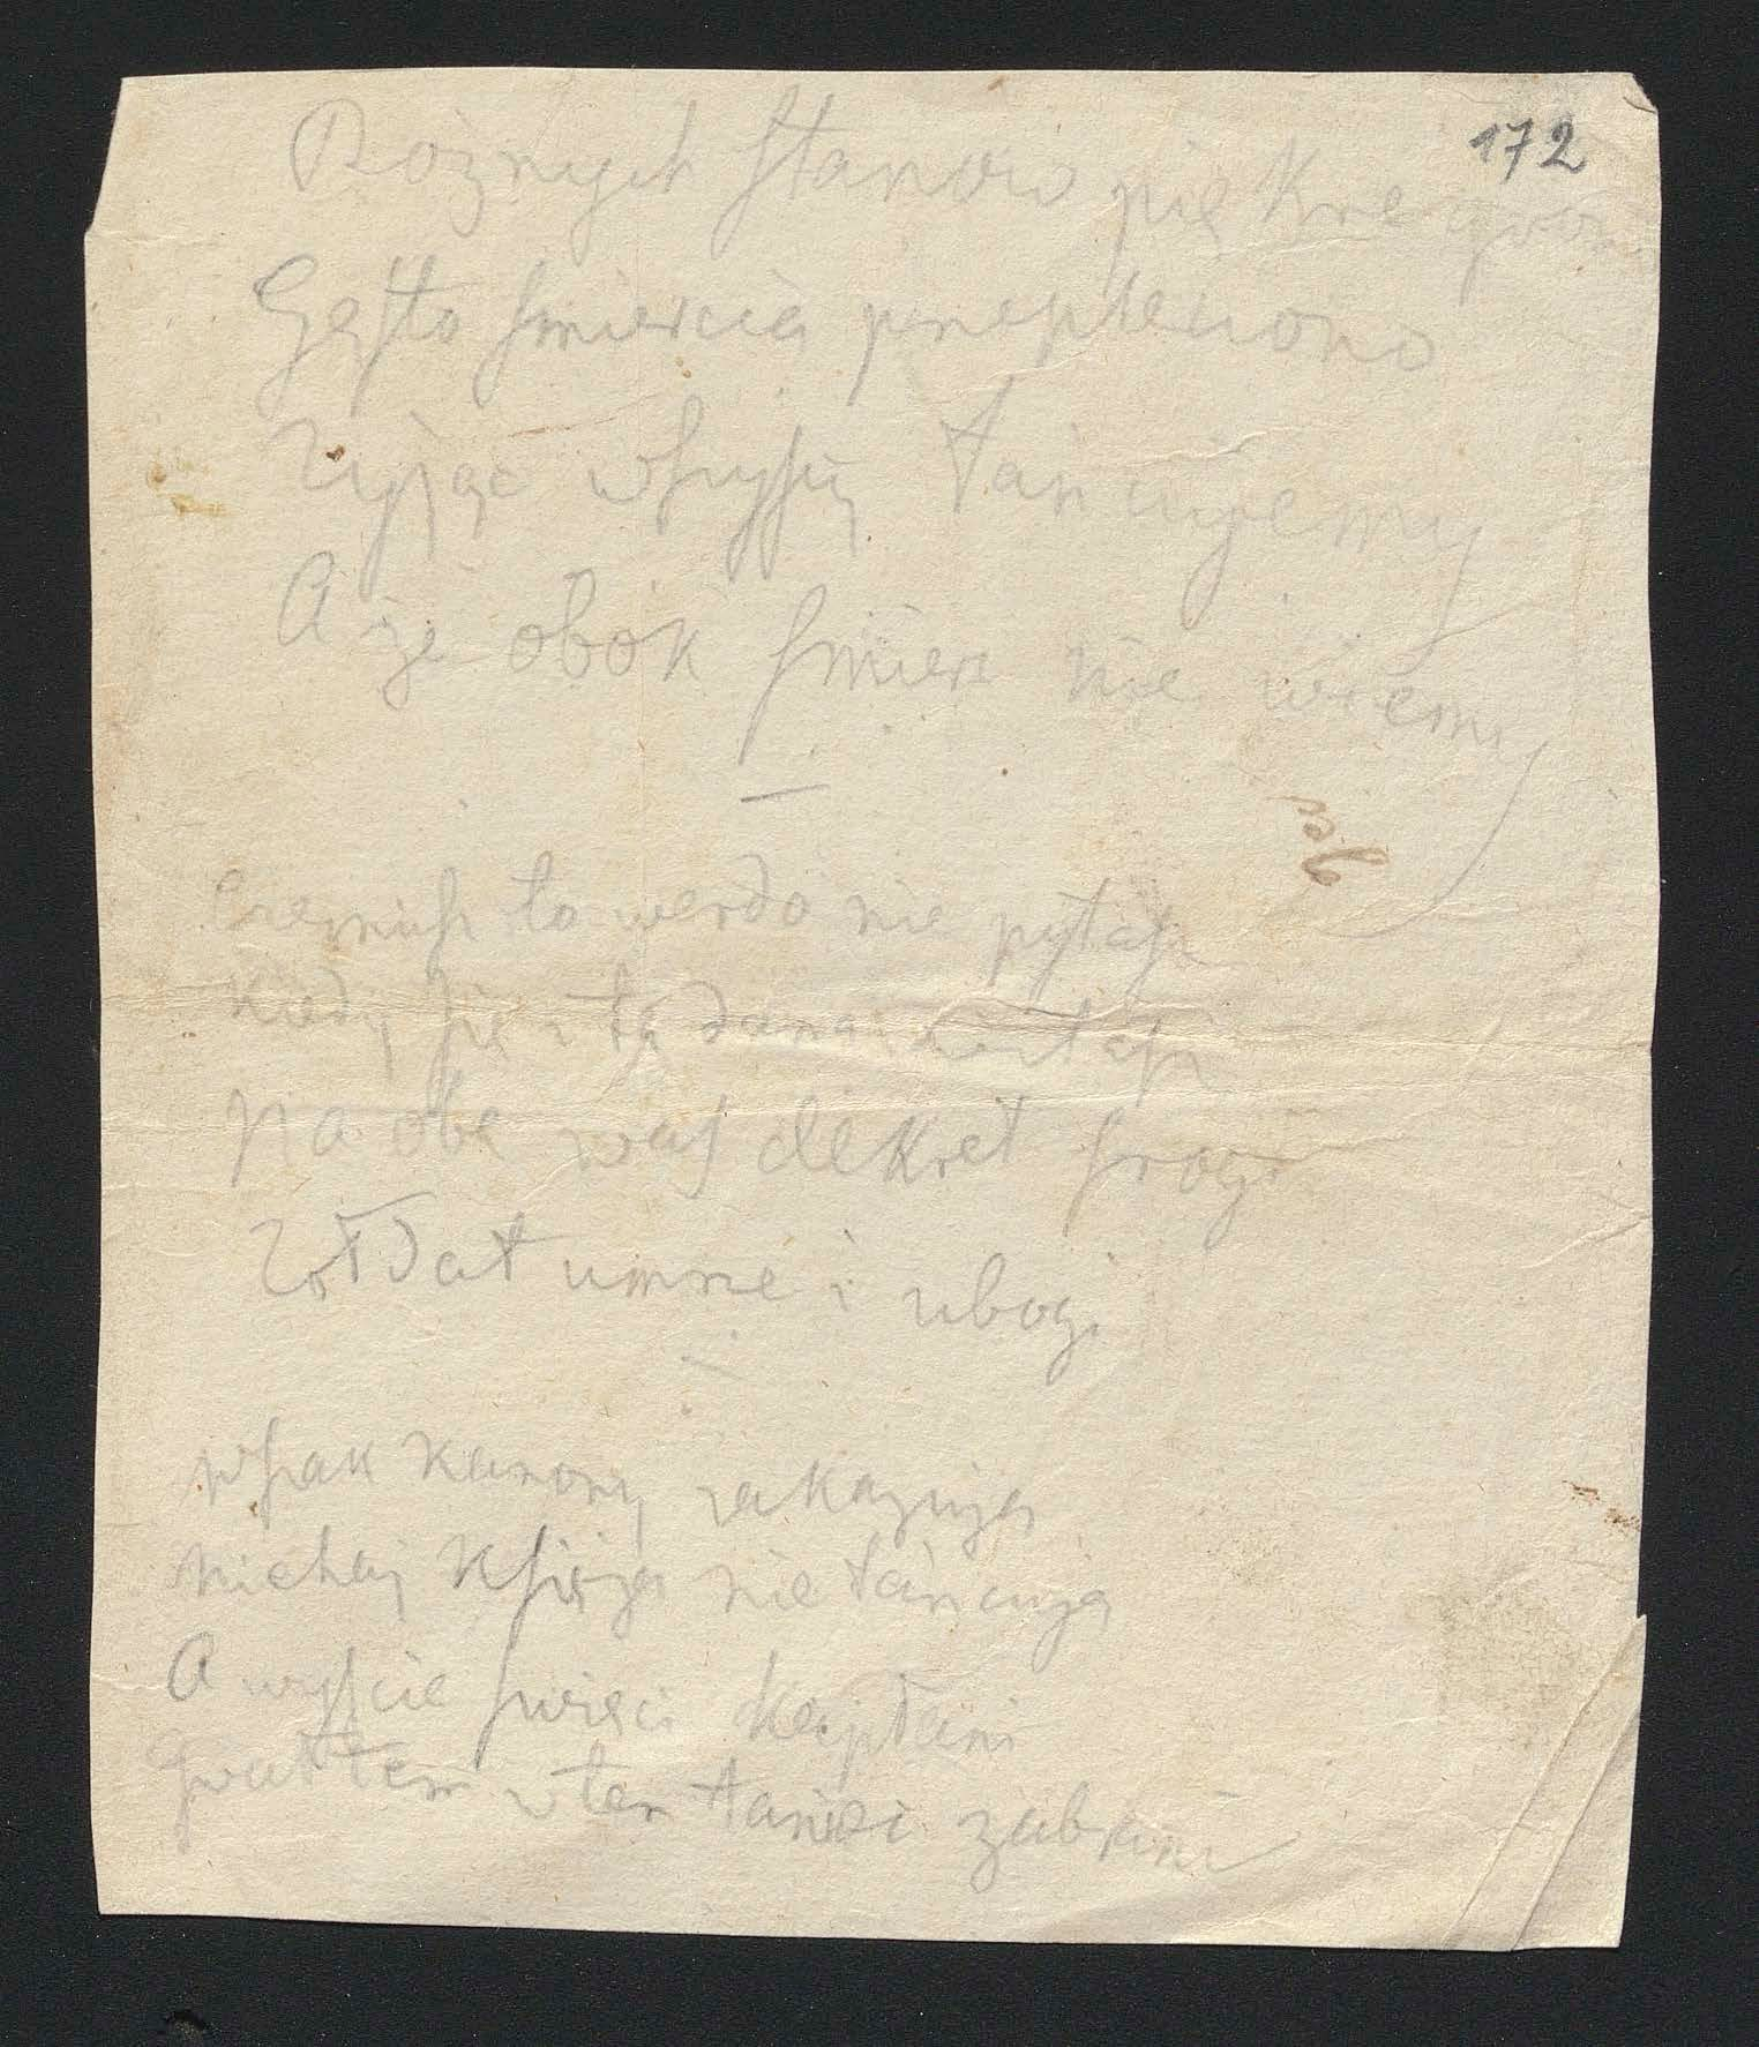 172
Rożnych ſtanow piękne gron
Gęſto ſmiercią przepleciono
Zyjąc wſzyſcy tańcujemy
A że obok ſmierc nie wiemy
—
to werdo nie pytaſz
Kiedy ſię z tą damą witaſz
Na obe waſ dekret ſrogi
Zołdat umrze i ubogi
—
wſzak kanony zakazują
niechaj kſięża nie tańcują
A wyſcie ſwięci kapłani
Gwałtem w ten taniec zabrani